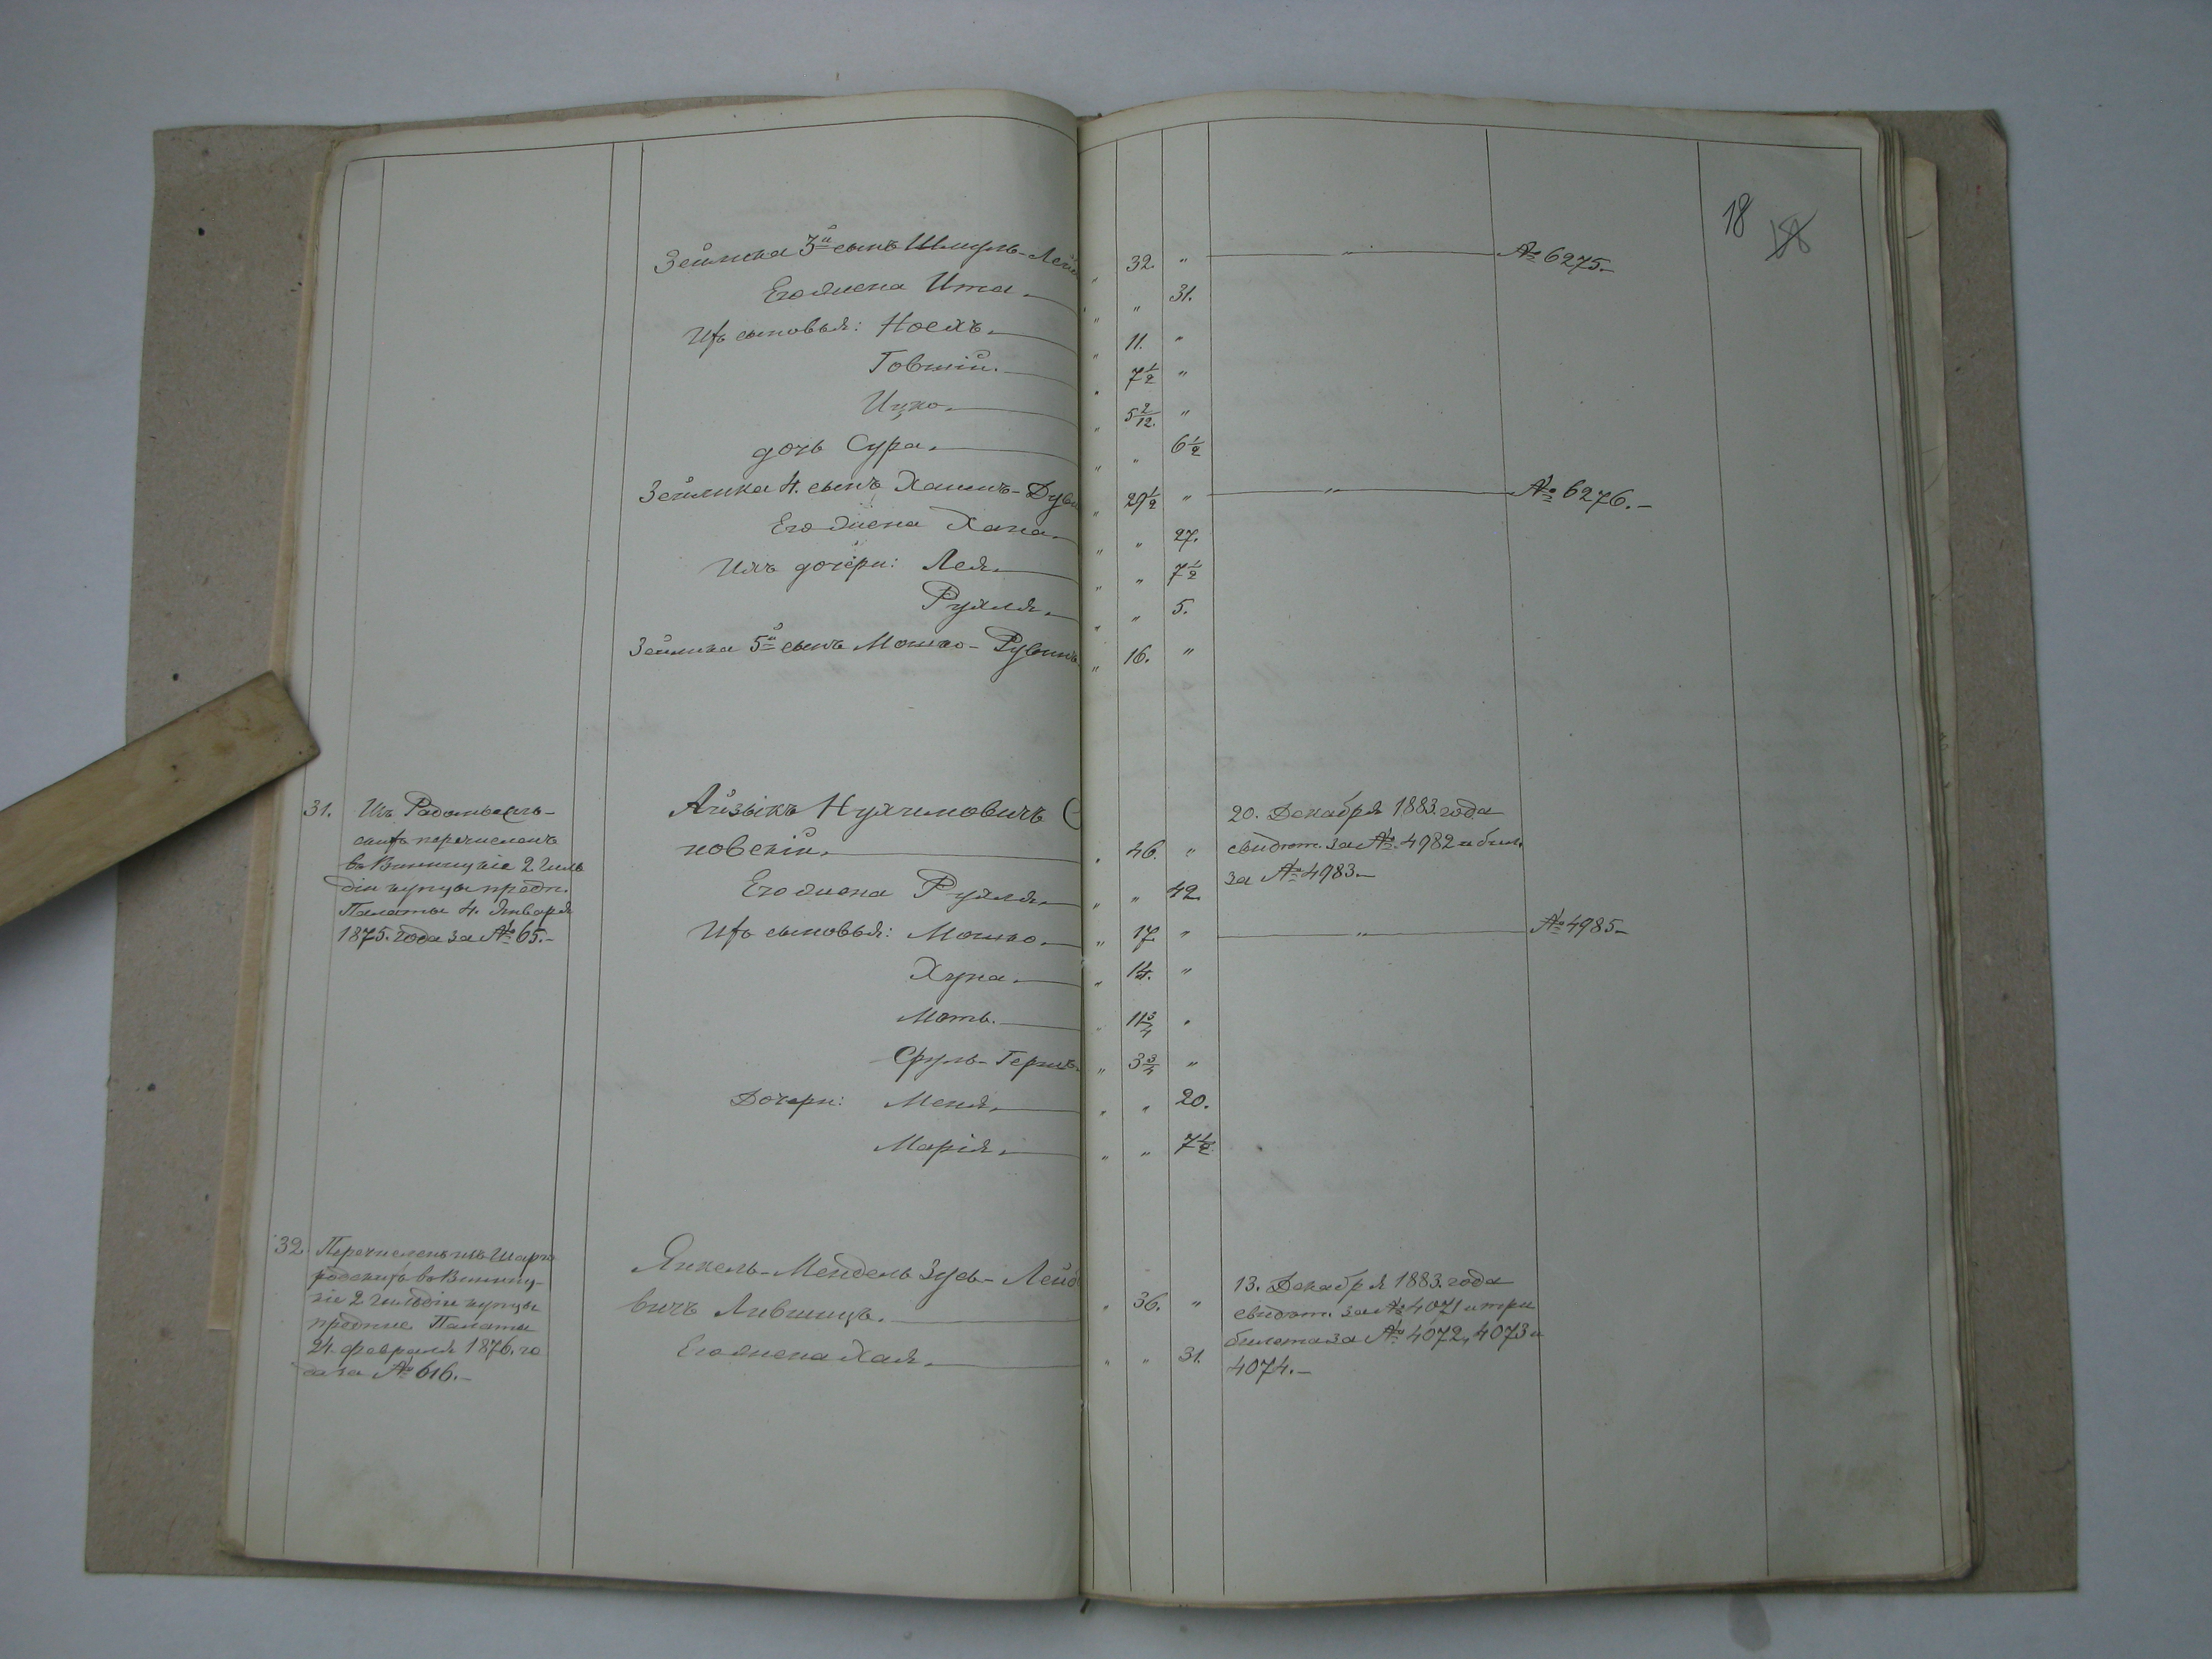 18
Зейлика 3й сынъ Шмуль-Лейб 32. " " № 6275.-
Его жена Ита. " 31.
Ихъ сыновья: Ноехъ. 11. "
Говшій. 7 1/2 "
Ицко. 5 2/12. "
дочь Сура. " 6 1/2
Зейлика 4. сынъ Хаимъ- 29 1/2 " " № 6276.-
Его жена Хана. " 27.
Ихъ дочери: Лея. " 7 1/2
Рухля. " 5.
Зейлика 5й сынъ Мошко-Рувинъ 16. "
31. Изъ Радомысль-
скихъ перечисленъ
въ Винницкіе 2 гиль
діи купцы предп.
Палаты 4. Января
1875. года за № 65.-
Айзыкъ Нухимовичъ
новскій. 46. "
Его жена Рухля. " 42.
Ихъ сыновья: Мошко. 17. " " № 4985-
Хуна. 14. "
Моть. 11 3/4 "
Сруль-Гершъ. 3 3/4 "
Дочери: Меня. " 20.
Марія. " 7 1/2
20. Декабря 1883. года
свидѣт. за № 4982 и бил.
за № 4983.-
32. Перечисленъ изъ Шарго
родскихъ въ Винниц-
кіе 2 гильдіи купцы
предпис. Палаты
24. февраля 1876. го
да за № 616.-
Янкель-Мендель Зусь-Лейбо
вичъ Лившицъ. 36. "
Его жена Хая. " 31.
13. Декабря 1883. года
свидѣт. за № 4071 и три
билета за № 4072, 4073 и
4074.-